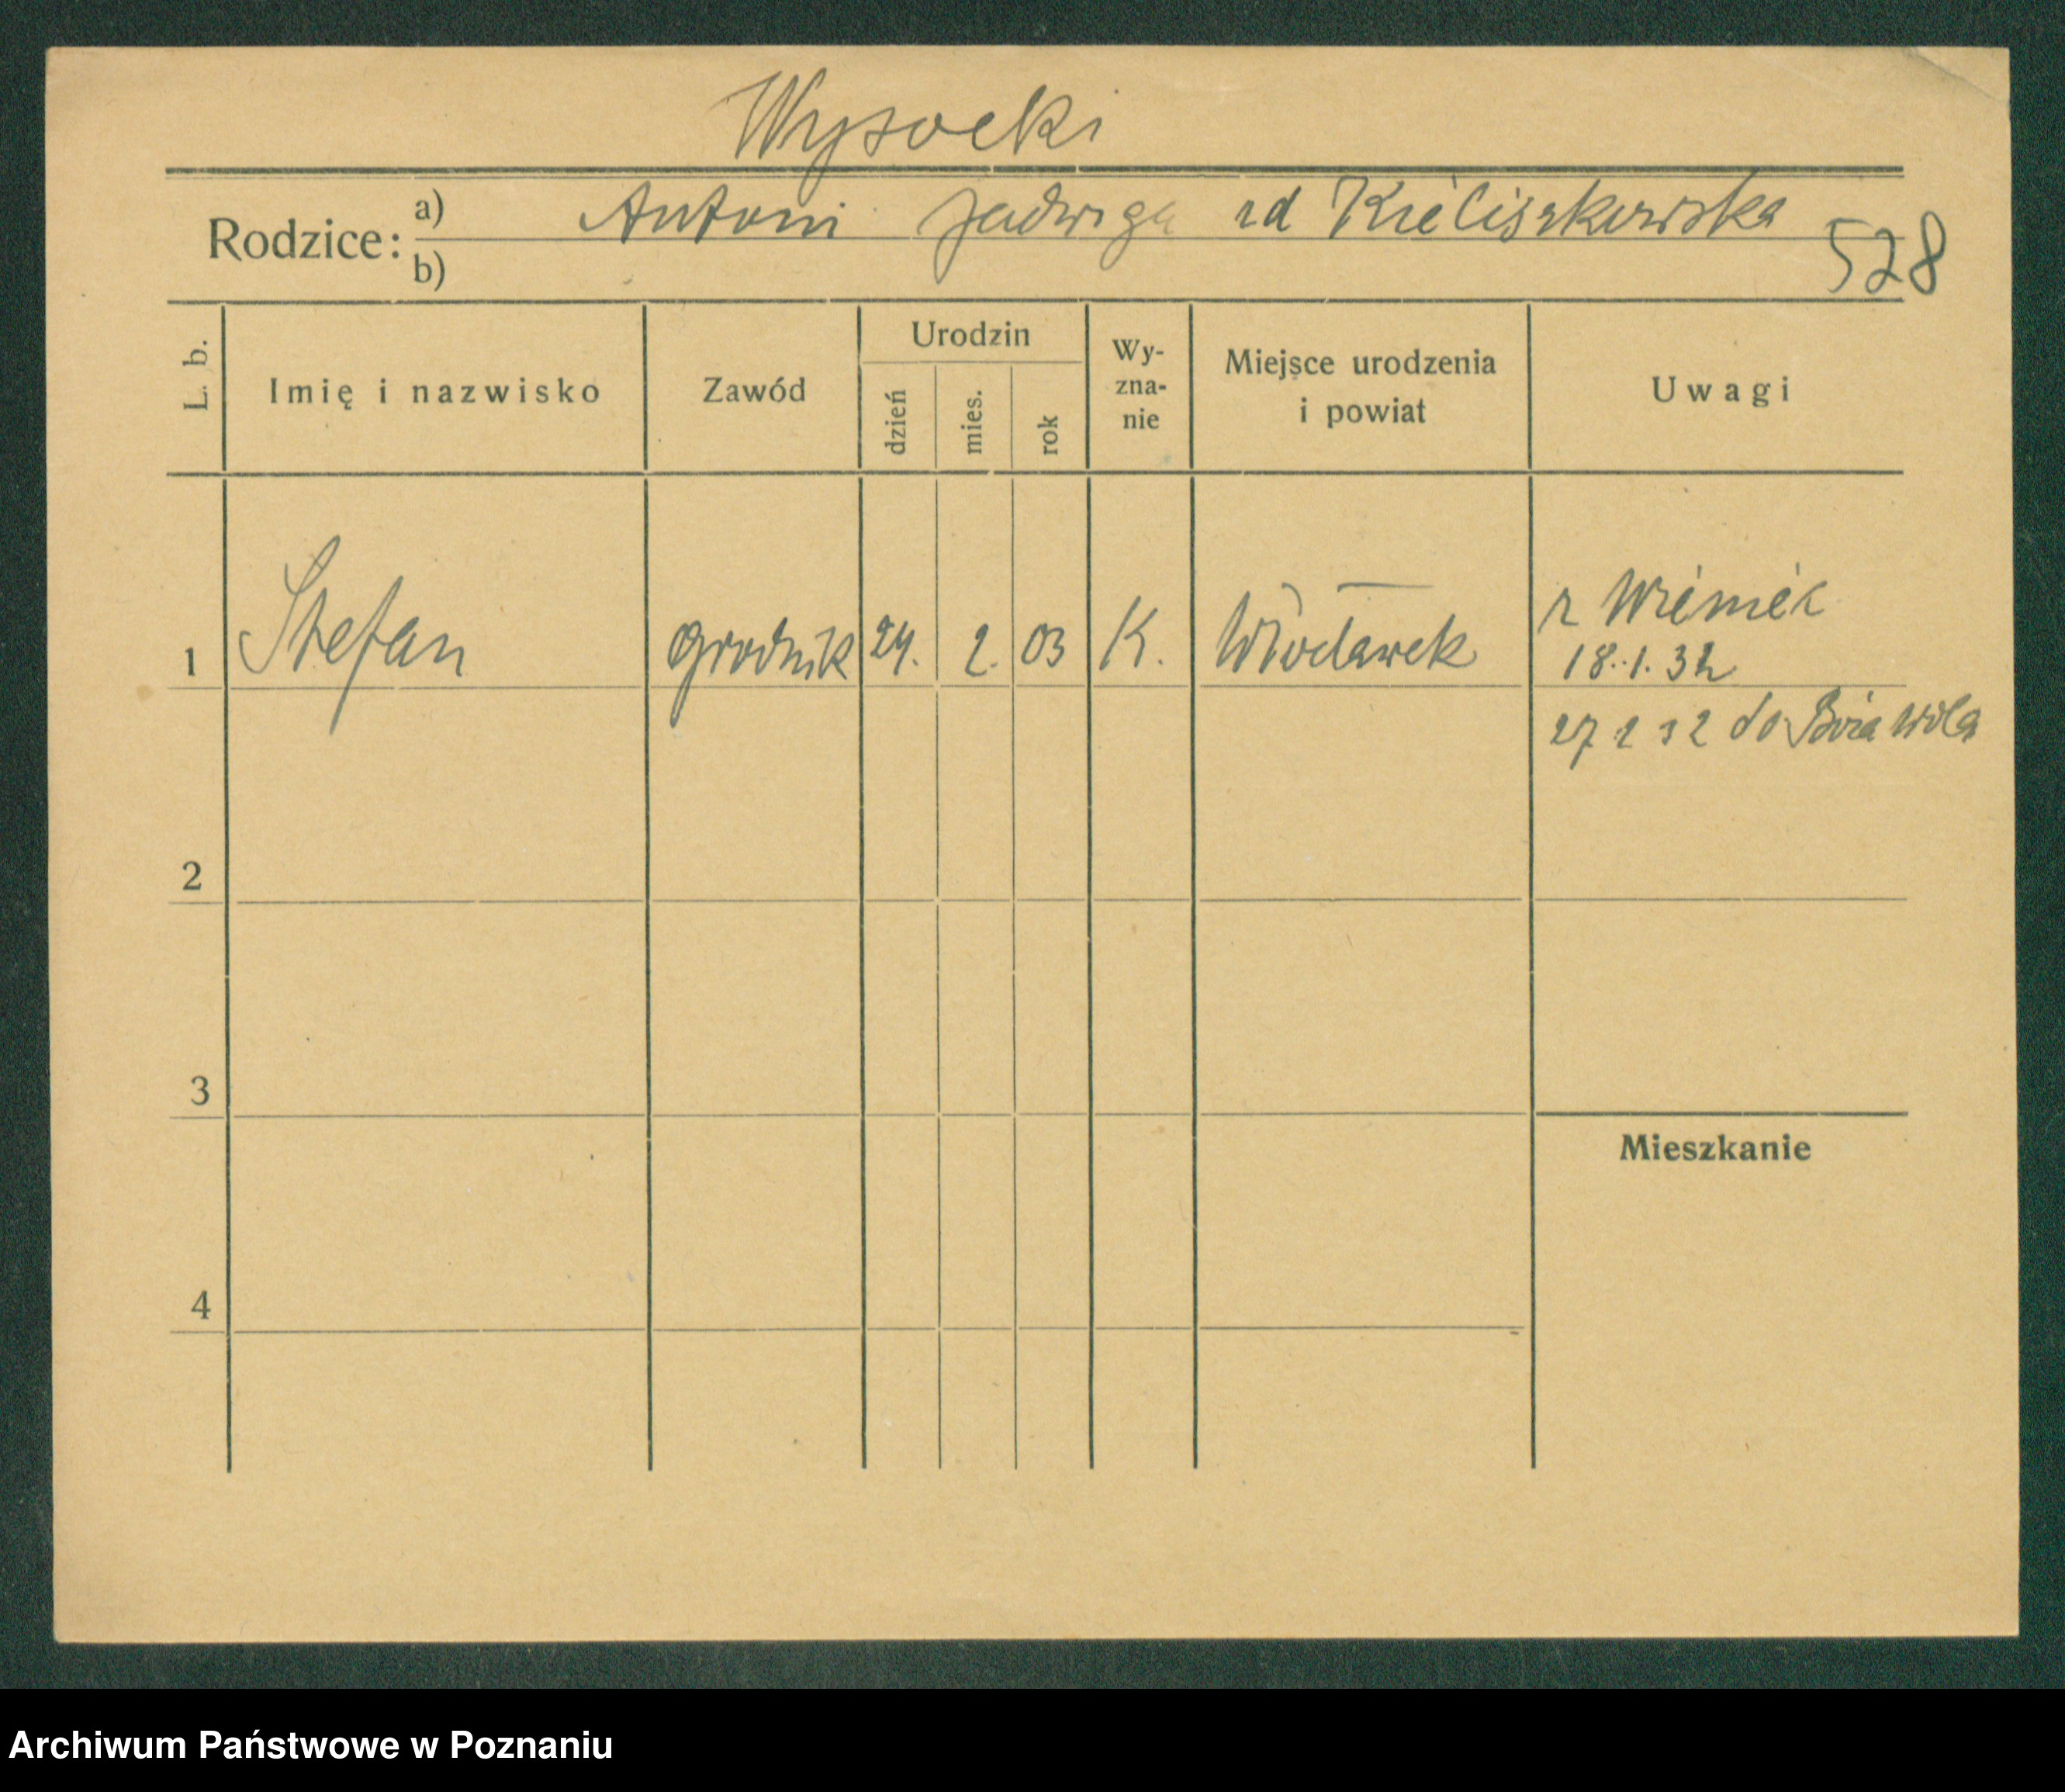 Wysocki
Rodzice: a) Antoni Jadwiga zd Kieliszkowska
b)
528
L. b.
Imię i nazwisko
Zawód
Urodzin
dzień
mies.
rok
Wy-
zna-
nie
Miejsce urodzenia
i powiat
Uwagi
1 Stefan ogrodnik 24. 2. 03 K. Włocławek
z Wieniec
18.1.32
27 2 32 do Wola
2
3
4
Mieszkanie
Archiwum Państwowe w Poznaniu